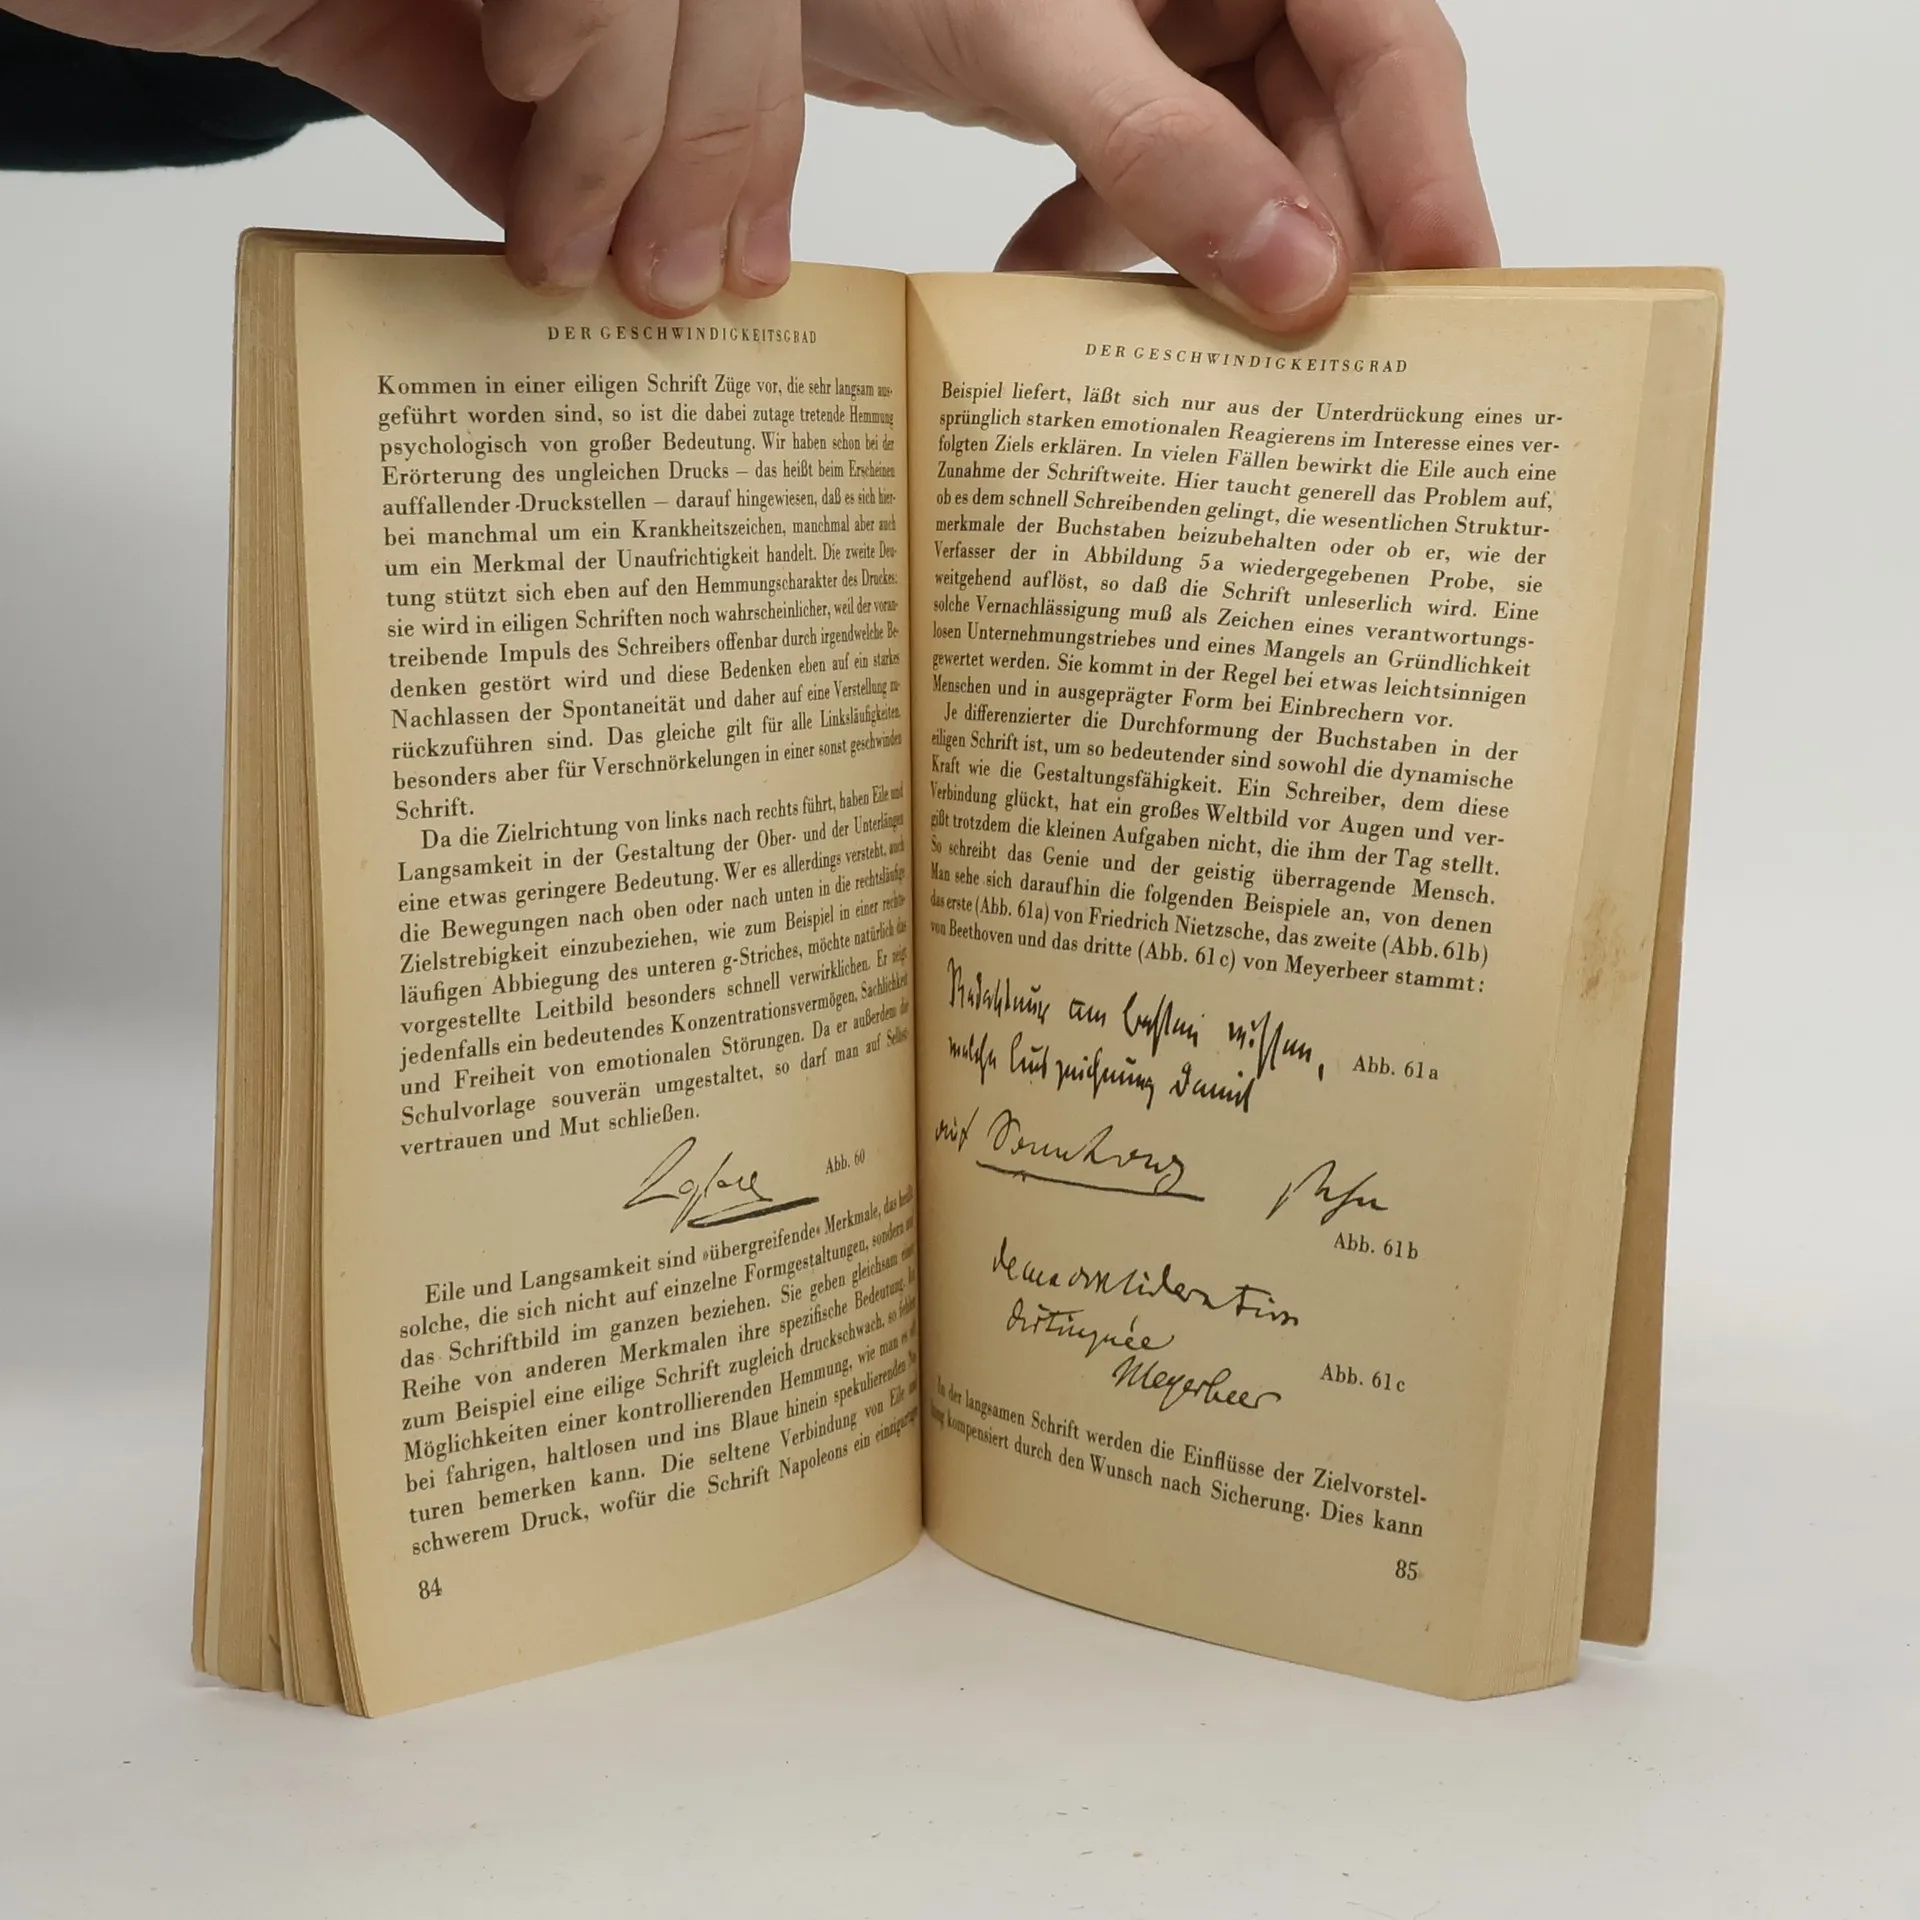 DER GESCHWINDIGKEITSGRAD
Kommen in einer eiligen Schrift Züge vor, die sehr langsam aus-
geführt worden sind, so ist die dabei zutage tretende Hemmung
psychologisch von großer Bedeutung. Wir haben schon bei der
Erörterung des ungleichen Drucks – das heißt beim Erscheinen
auffallender Druckstellen – darauf hingewiesen, daß es sich hier-
bei manchmal um ein Krankheitszeichen, manchmal aber auch
um ein Merkmal der Unaufrichtigkeit handelt. Die zweite Deu-
tung stützt sich eben auf den Hemmungscharakter des Druckes:
sie wird in eiligen Schriften noch wahrscheinlicher, weil der voran-
treibende Impuls des Schreibers offenbar durch irgendwelche Be-
denken gestört wird und diese Bedenken eben auf ein starkes
Nachlassen der Spontaneität und daher auf eine Verstellung zu-
rückzuführen sind. Das gleiche gilt für alle Linksläufigkeiten,
besonders aber für Verschnörkelungen in einer sonst geschwinden
Schrift.
Da die Zielrichtung von links nach rechts führt, haben Eile und
Langsamkeit in der Gestaltung der Ober- und der Unterlängen
eine etwas geringere Bedeutung. Wer es allerdings versteht, auch
die Bewegungen nach oben oder nach unten in die rechtsläufige
Zielstrebigkeit einzubeziehen, wie zum Beispiel in einer rechts-
läufigen Abbiegung des unteren g-Striches, möchte natürlich das
vorgestellte Leitbild besonders schnell verwirklichen. Er zeigt
jedenfalls ein bedeutendes Konzentrationsvermögen, Sachlichkeit
und Freiheit von emotionalen Störungen. Da er außerdem die
Schulvorlage souverän umgestaltet, so darf man auf Selbst-
vertrauen und Mut schließen.
Abb. 60
Eile und Langsamkeit sind »übergreifende« Merkmale, das heißt
solche, die sich nicht auf einzelne Formgestaltungen, sondern auf
das Schriftbild im ganzen beziehen. Sie geben gleichsam einer
Reihe von anderen Merkmalen ihre spezifische Bedeutung. Ist
zum Beispiel eine eilige Schrift zugleich druckschwach, so fehlen
Möglichkeiten einer kontrollierenden Hemmung, wie man es oft
bei fahrigen, haltlosen und ins Blaue hinein spekulierenden Na-
turen bemerken kann. Die seltene Verbindung von Eile und
schwerem Druck, wofür die Schrift Napoleons ein einzigartiges
84
DER GESCHWINDIGKEITSGRAD
Beispiel liefert, läßt sich nur aus der Unterdrückung eines ur-
sprünglich starken emotionalen Reagierens im Interesse eines ver-
folgten Ziels erklären. In vielen Fällen bewirkt die Eile auch eine
Zunahme der Schriftweite. Hier taucht generell das Problem auf,
ob es dem schnell Schreibenden gelingt, die wesentlichen Struktur-
merkmale der Buchstaben beizubehalten oder ob er, wie der
Verfasser der in Abbildung 5a wiedergegebenen Probe, sie
weitgehend auflöst, so daß die Schrift unleserlich wird. Eine
solche Vernachlässigung muß als Zeichen eines verantwortungs-
losen Unternehmungstriebes und eines Mangels an Gründlichkeit
gewertet werden. Sie kommt in der Regel bei etwas leichtsinnigen
Menschen und in ausgeprägter Form bei Einbrechern vor.
Je differenzierter die Durchformung der Buchstaben in der
eiligen Schrift ist, um so bedeutender sind sowohl die dynamische
Kraft wie die Gestaltungsfähigkeit. Ein Schreiber, dem diese
Verbindung glückt, hat ein großes Weltbild vor Augen und ver-
gißt trotzdem die kleinen Aufgaben nicht, die ihm der Tag stellt.
So schreibt das Genie und der geistig überragende Mensch.
Man sehe sich daraufhin die folgenden Beispiele an, von denen
das erste (Abb. 61a) von Friedrich Nietzsche, das zweite (Abb. 61b)
von Beethoven und das dritte (Abb. 61c) von Meyerbeer stammt:
am besten
Abb. 61a
welche Auszeichnung damit
auf
Abb. 61b
de ma consideration
distinguée
Meyerbeer
Abb. 61c
In der langsamen Schrift werden die Einflüsse der Zielvorstel-
lung kompensiert durch den Wunsch nach Sicherung. Dies kann
85